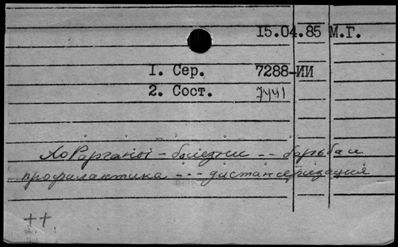 15.04.85 М.Г.
1. Сер. 7288-ИИ
2. Сост. 7441
- болезни -- борьба и
профилактика --- диспансеризация
++